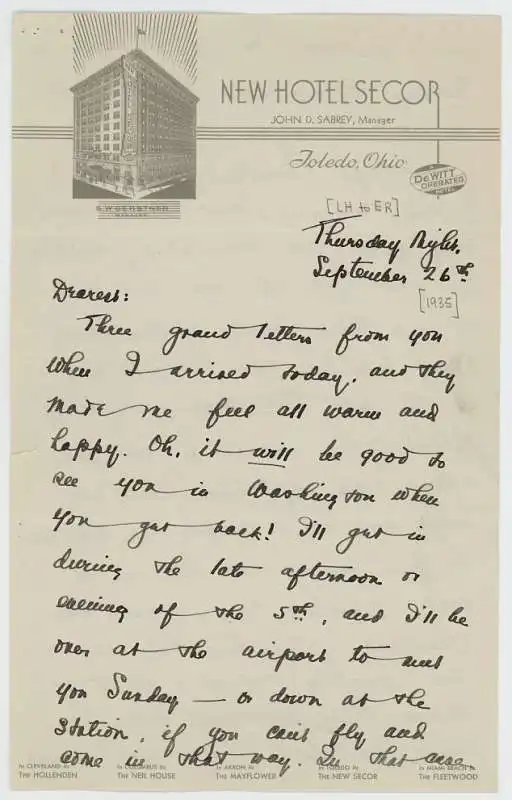 NEW HOTEL SECOR
JOHN D. SABREY, Manager
Toledo, Ohio
DEWITT
OPERATED
HOTEL
MANAGER
[LH to ER]
Thursday Night,
September 26th
[1935]
Dearest:
Three grand letters from you
when I arrived today, and they
made me feel all warm and
happy. Oh, it will be good to
see you in Washington when
you get back! I'll get in
during the late afternoon or
evening of the 5th, and I'll be
over at the airport to meet
you Sunday — or down at the
station, if you can't fly and
come in that way. In that case,
In CLEVELAND It's
THE HOLLENDEN
In COLUMBUS It's
THE NEIL HOUSE
In AKRON It's
THE MAYFLOWER
In TOLEDO It's
THE NEW SECOR
In MIAMI BEACH It's
THE FLEETWOOD